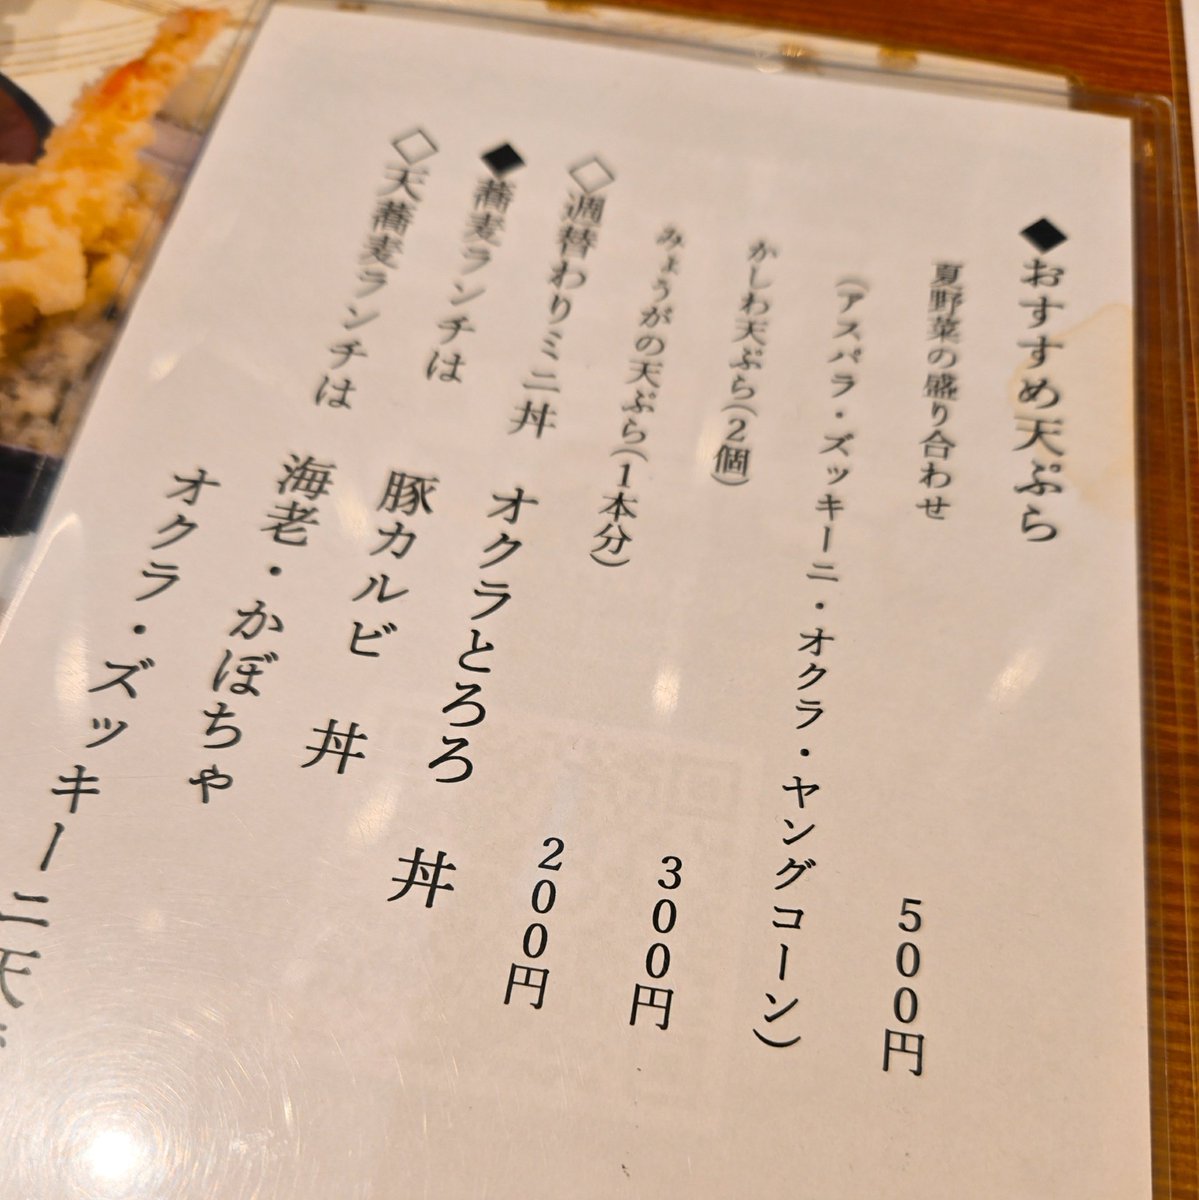 ◆おすすめ天ぷら
夏野菜の盛り合わせ 500円
(アスパラ・ズッキーニ・オクラ・ヤングコーン)
かしわ天ぷら(2個) 300円
みょうがの天ぷら(1本分) 200円
◇週替わりミニ丼 オクラとろろ 丼
◆蕎麦ランチは 豚カルビ 丼
◇天蕎麦ランチは 海老・かぼちゃ
オクラ・ズッキーニ天